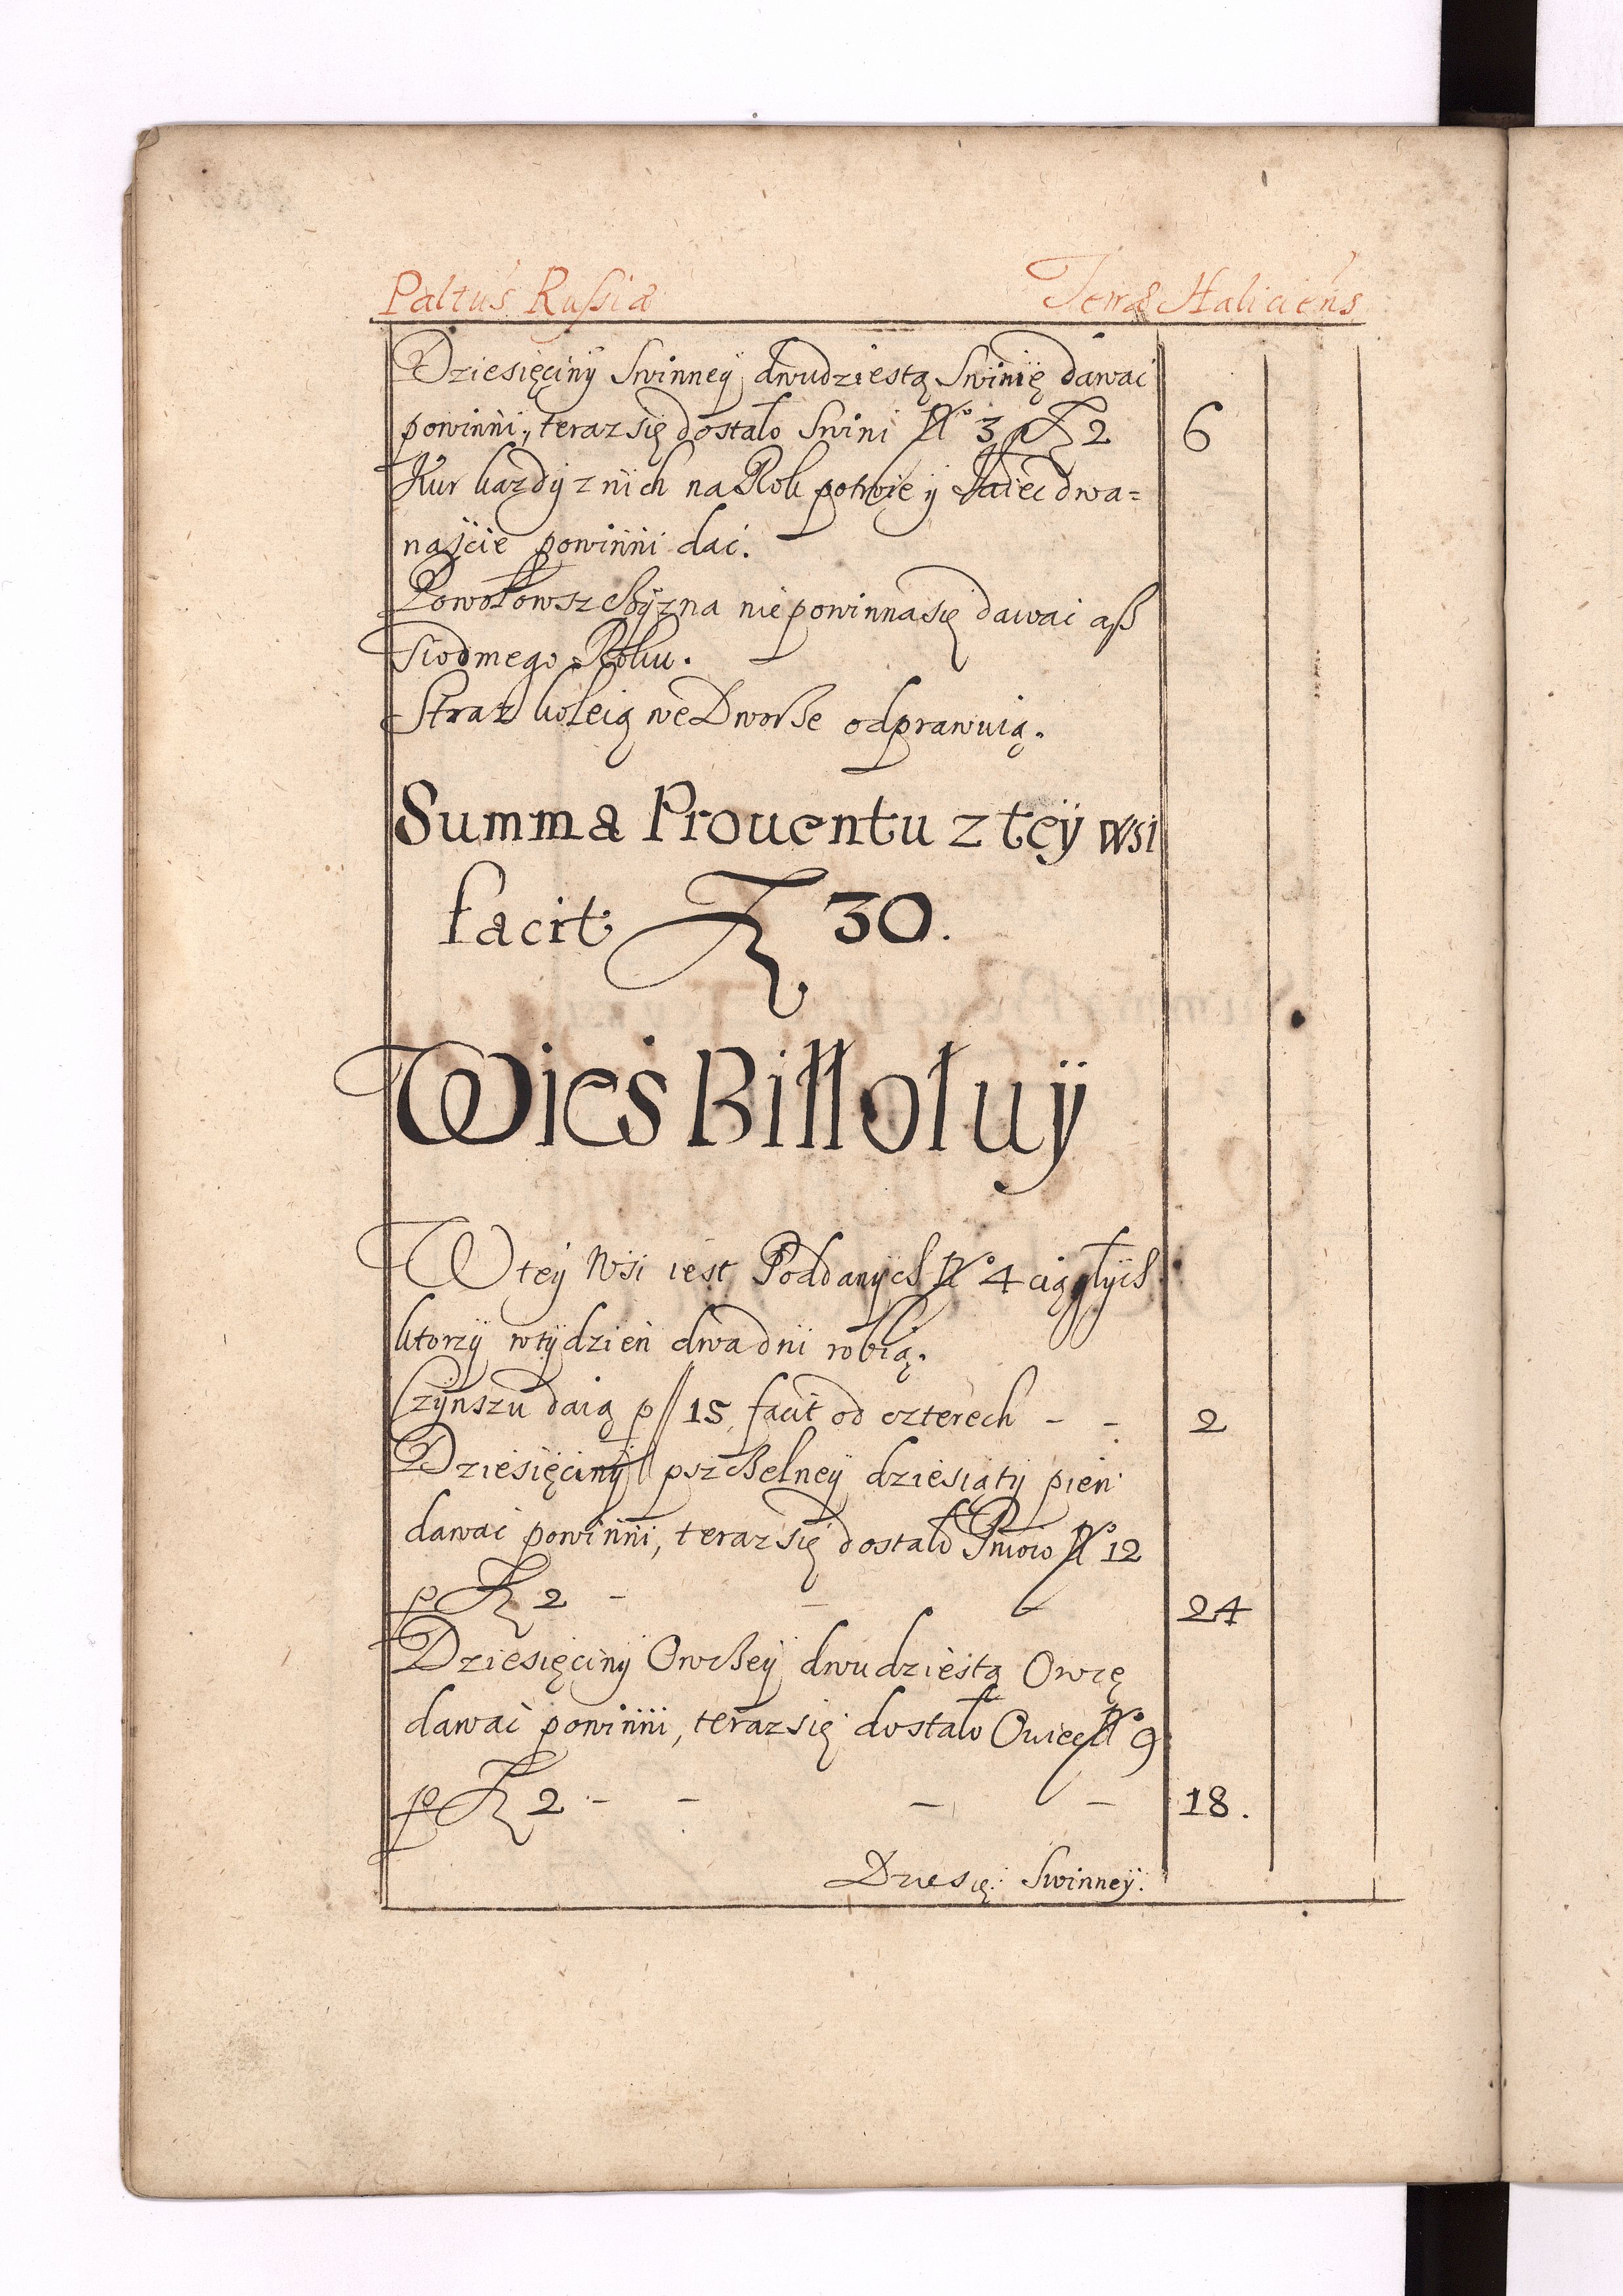 Paltus Russiæ Terræ Haliciens
Dziesięciny Swinney dwudziestą Swinię dawać
powinni, teraz się dostało Swini No 3 p fl 2 6
Kur każdy z nich na Rok po troie y Jaiec dwa=
naście powinni dać.
Powołowszchyzna nie powinna się dawać aß
siodmego Roku.
Straż koleią we Dworße odprawuią.
Summa Prouentu z tey wsi
facit fl 30.
Wieś Billoluÿ
W tey Wsi iest Poddanych No 4 ciągłych
ktorzy w tydzień dwa dni robią.
Czynszu daią p // 15 facit od czterech - - 2
Dziesięciny pszczelney dziesiąty pień
dawać powinni, teraz się dostało Pniow No 12
p fl 2 - - - 24
Dziesięciny Owczey dwudziestą Owcę
dawać powinni, teraz się dostało Owiec No 9
p fl 2 - - - - 18.
Dziesię: Swinney.